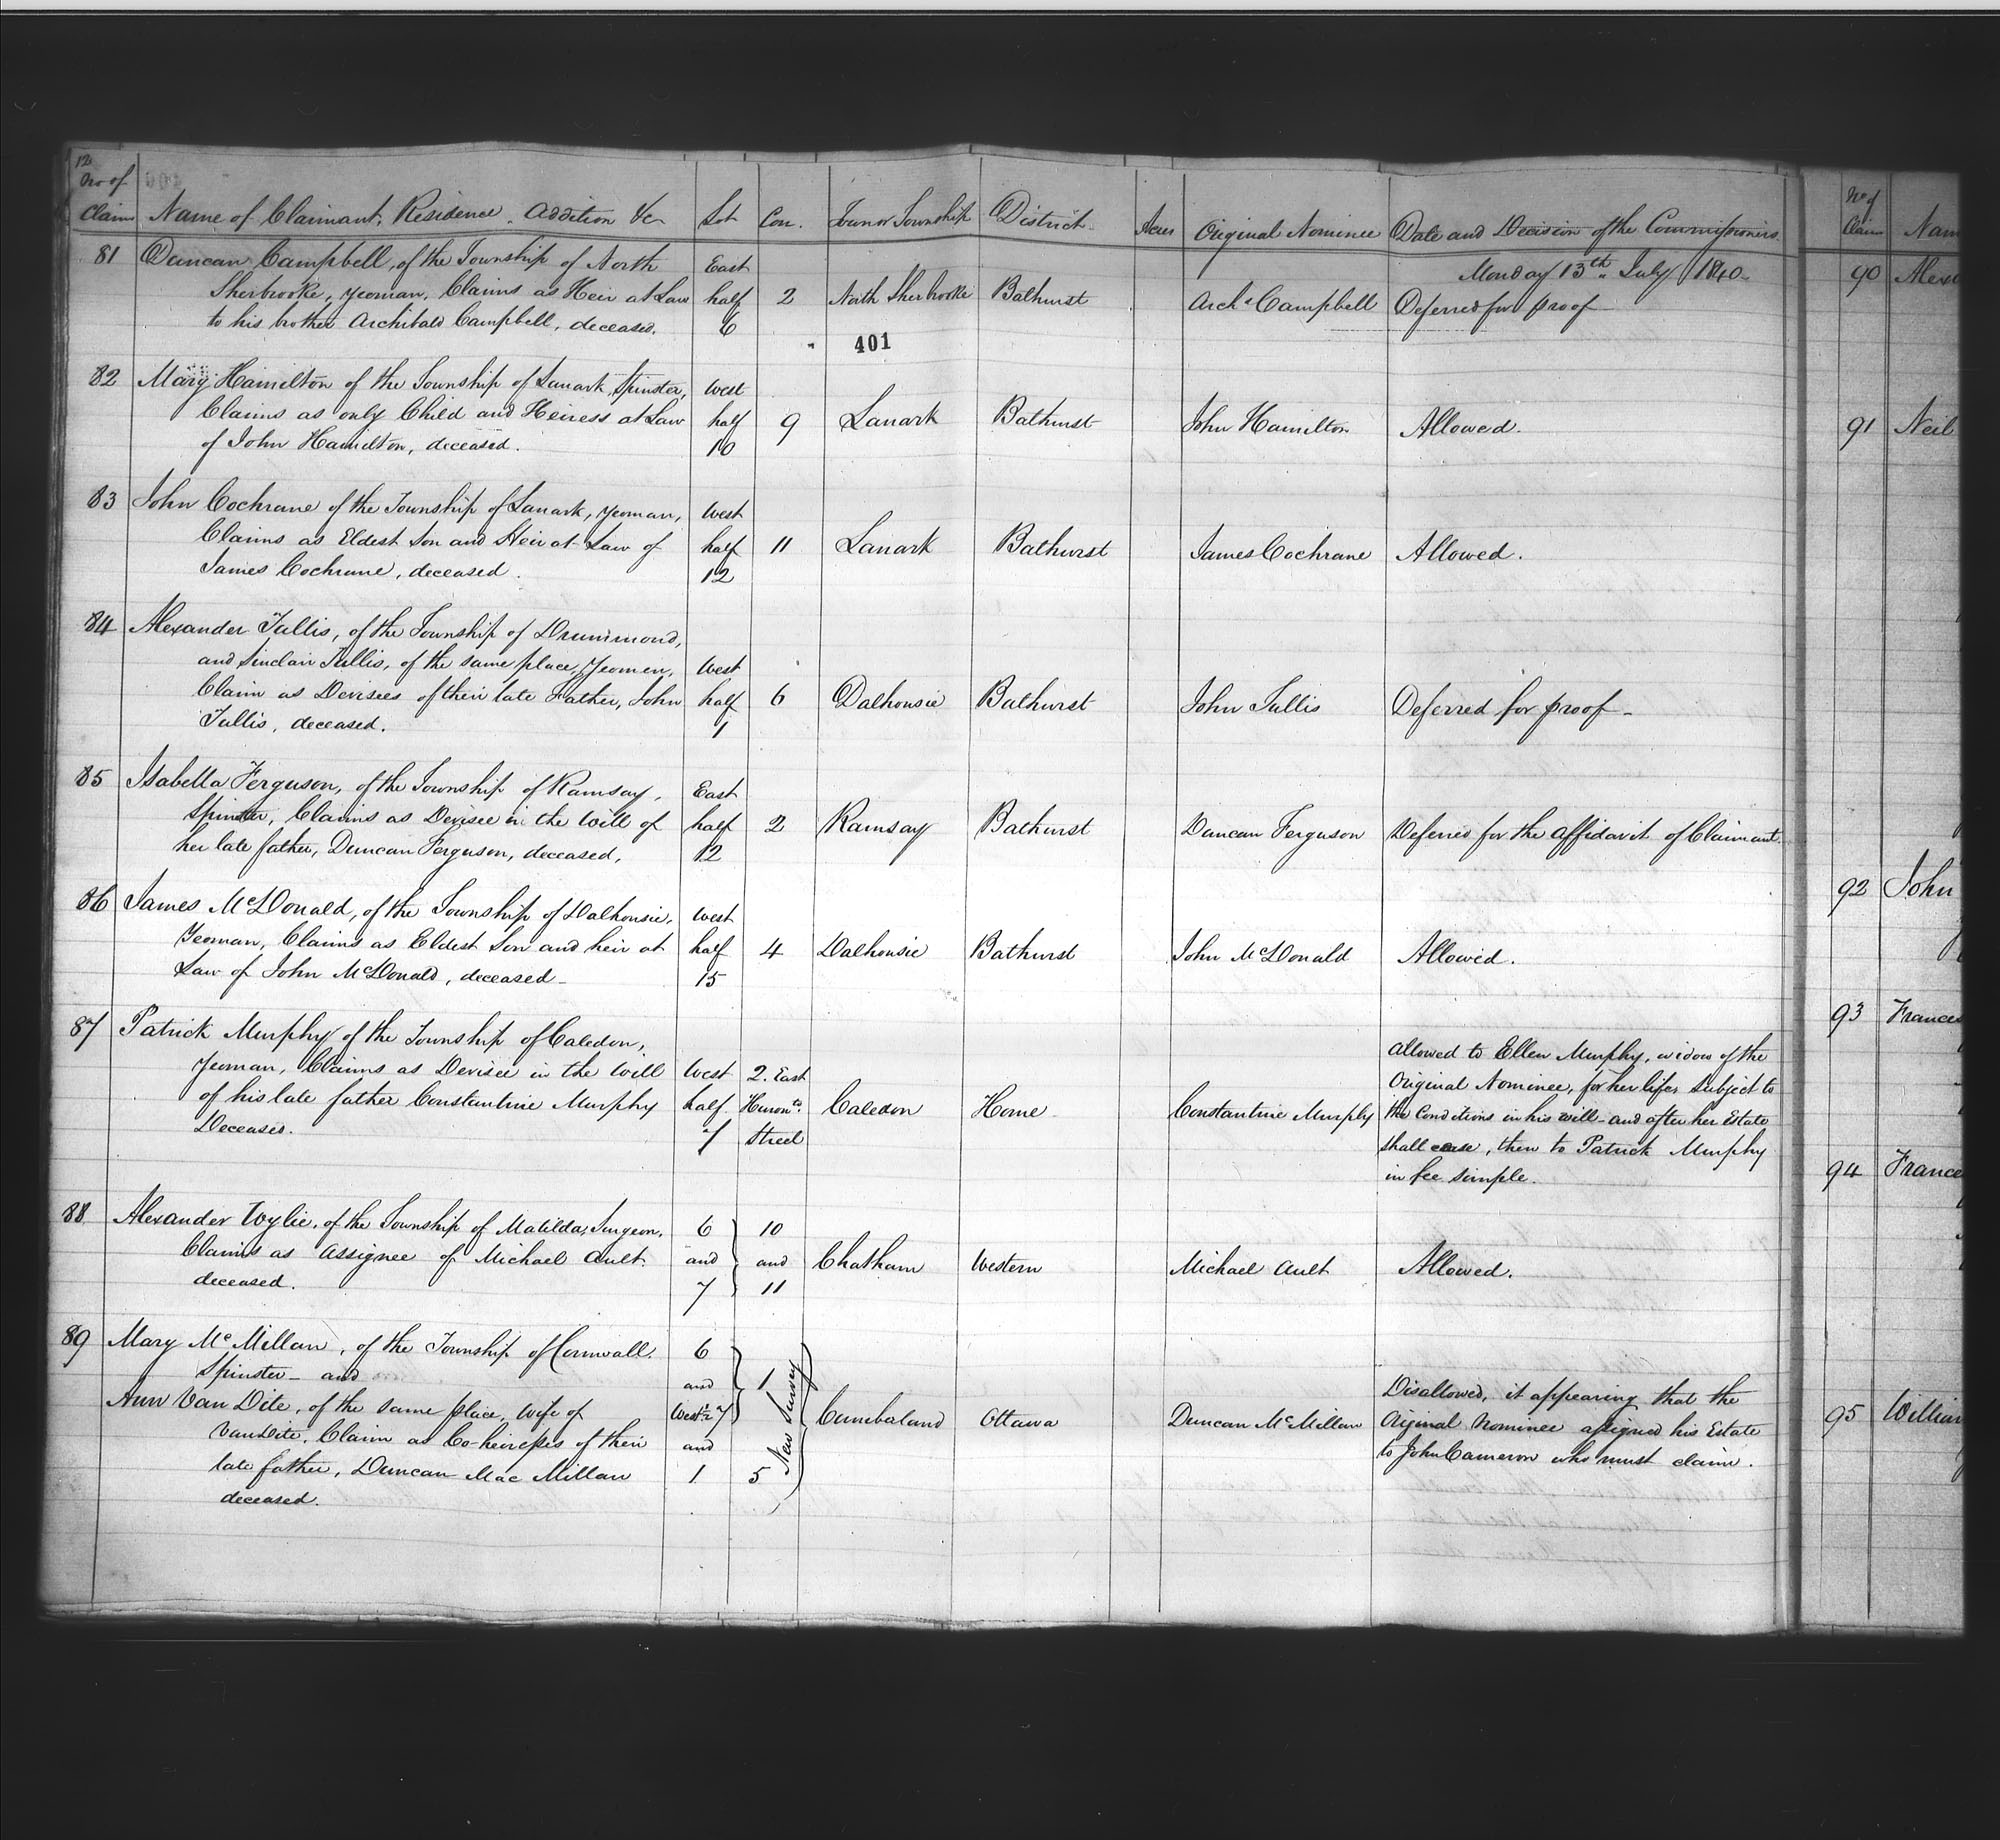 12
No of
Claim Name of Claimant, Residence, Addition &c Lot Con. Town or Township District Acres Original Nominee Date and Decision of the Commissioners
Monday 13th July 1840
81 Duncan Campbell, of the Township of North East
Sherbrooke, yeoman, Claims as Heir at Law half 2 North Sherbrooke Bathurst Archd Campbell Deferred for proof
to his brother Archibald Campbell, deceased. 6
401
82 Mary Hamilton of the Township of Lanark, Spinster, West
Claims as only Child and Heiress at Law half 9 Lanark Bathurst John Hamilton Allowed.
of John Hamilton, deceased. 10
83 John Cochrane of the Township of Lanark, yeoman, West
Claims as Eldest Son and Heir at Law of half 11 Lanark Bathurst James Cochrane Allowed.
James Cochrane, deceased. 12
84 Alexander Tullis, of the Township of Drummond,
and Sinclair Tullis, of the same place, Yeomen, West
Claim as Devisees of their late Father, John half 6 Dalhousie Bathurst John Tullis Deferred for proof -
Tullis, deceased. 1
85 Isabella Ferguson, of the Township of Ramsay, East
Spinster, Claims as Devisee in the Will of half 2 Ramsay Bathurst Duncan Ferguson Deferred for the affidavit of Claimant.
her late father, Duncan Ferguson, deceased, 12
86 James McDonald, of the Township of Dalhousie, West
Yeoman, Claims as Eldest Son and heir at half 4 Dalhousie Bathurst John McDonald Allowed.
Law of John McDonald, deceased - 15
87 Patrick Murphy of the Township of Caledon, Allowed to Ellen Murphy, widow of the
Yeoman, Claims as Devisee in the Will West 2. East Original Nominee, for her life, Subject to
of his late father Constantine Murphy half Huronto Caledon Home Constantine Murphy the Conditions in his will - and after her Estate
Deceased. 7 Street shall cease, then to Patrick Murphy
in fee simple.
88 Alexander Wylie, of the Township of Matilda, Surgeon, 6 10
Claims as Assignee of Michael Ault and and Chatham Western Michael Ault Allowed.
deceased. 7 11
89 Mary McMillan, of the Township of Cornwall. 6
Spinster - and and 1 Disallowed, it appearing that the
Ann Van Dite, of the same place, wife of West ½ 7 New Survey Cumberland Ottawa Duncan McMillan Original Nominee assigned his Estate
Van Dite, Claim as Co-heiresses of their and to John Cameron who must claim.
late father, Duncan Mac Millan 1 5
deceased.
No of
Claim Nam
90 Alex
91 Neil
92 John
93 Frances
94 France
95 William